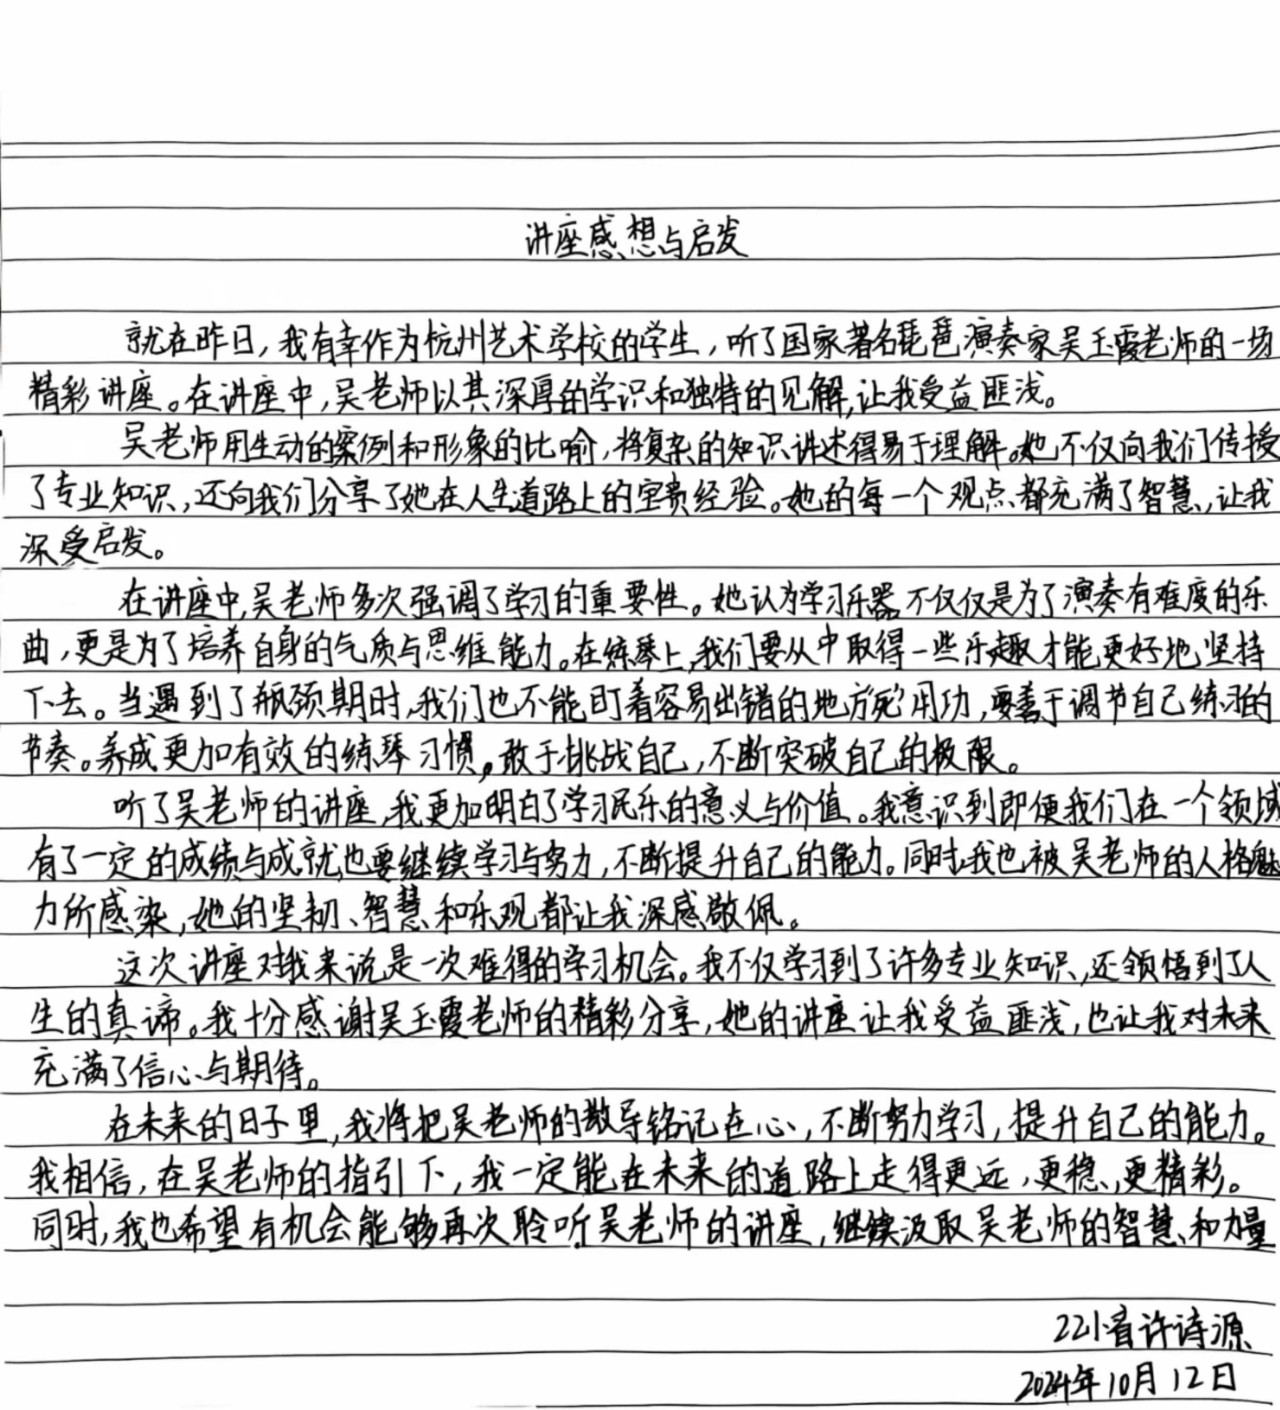 讲座感想与启发
就在昨日，我有幸作为杭州艺术学校的学生，听了国家著名琵琶演奏家吴玉霞老师的一场
精彩讲座。在讲座中，吴老师以其深厚的学识和独特的见解，让我受益匪浅。
吴老师用生动的案例和形象的比喻，将复杂的知识讲述得易于理解。她不仅向我们传授
了专业知识，还向我们分享了她在人生道路上的宝贵经验。她的每一个观点都充满了智慧，让我
深受启发。
在讲座中，吴老师多次强调了学习的重要性。她认为学习乐器不仅仅是为了演奏有难度的乐
曲，更是为了培养自身的气质与思维能力。在练琴上，我们要从中取得一些乐趣才能更好地坚持
下去。当遇到了瓶颈期时，我们也不能盯着容易出错的地方死用功，要善于调节自己练习的
节奏。养成更加有效的练琴习惯，敢于挑战自己，不断突破自己的极限。
听了吴老师的讲座，我更加明白了学习民乐的意义与价值。我意识到即便我们在一个领域
有了一定的成绩与成就，也要继续学习与努力，不断提升自己的能力。同时，我也被吴老师的人格魅
力所感染，她的坚韧、智慧和乐观都让我深感敬佩。
这次讲座对我来说是一次难得的学习机会。我不仅学习到了许多专业知识，还领悟到了人
生的真谛。我十分感谢吴玉霞老师的精彩分享，她的讲座让我受益匪浅，也让我对未来
充满了信心与期待。
在未来的日子里，我将把吴老师的教导铭记在心，不断努力学习，提升自己的能力。
我相信，在吴老师的指引下，我一定能在未来的道路上走得更远，更稳，更精彩。
同时，我也希望有机会能够再次聆听吴老师的讲座，继续汲取吴老师的智慧和力量
221音许诗源
2024年10月12日